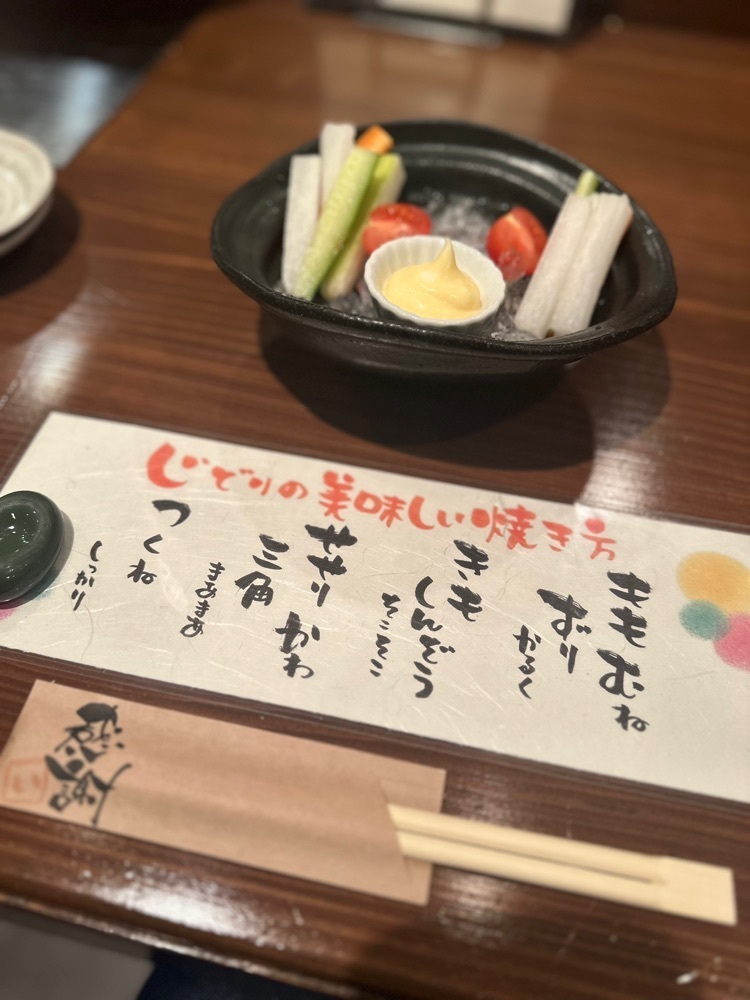 じどりの美味しい焼き方
もも むね
ずり
かるく
きも
しんぞう
そこそこ
せせり かわ
三角
まあまあ
つくね
しっかり
感謝